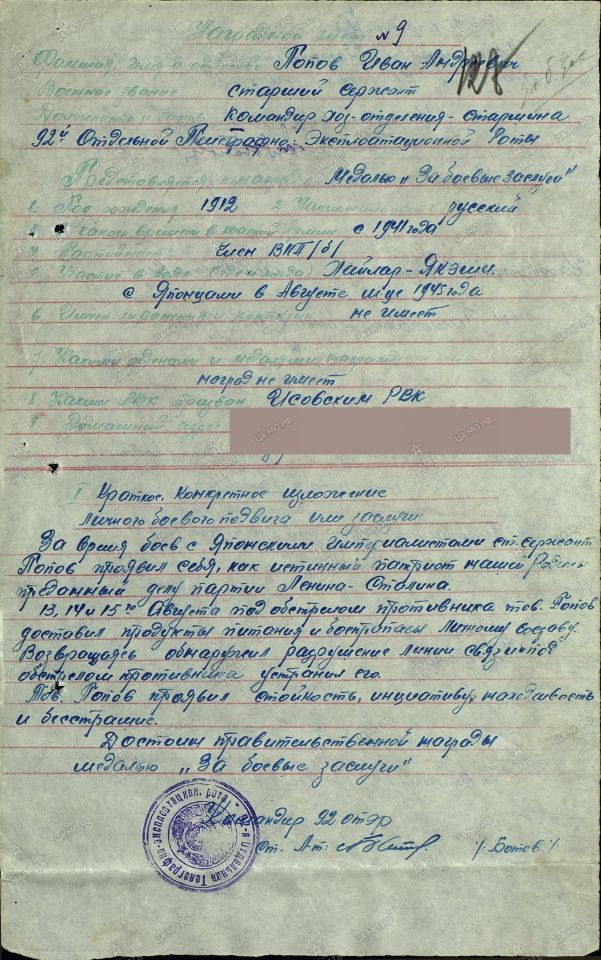 Наградной лист №9
128
Фамилия, имя и отчество Попов Иван Андреевич
Военное звание старший сержант
Должность и часть командир хоз-отделения-старшина
92й Отдельной Телеграфно Эксплоатационной Роты
Представляется к награде Медалью „За боевые заслуги"
1. Год рождения 1912 2. Национальность русский
3. С какого времени в Красной Армии с 1941 года
4. Партийность Член ВКП/б/
5. Участие в боях (где и когда) Хайлар-Якэши.
с Японцами в Августе м-це 1945 года
6. Имеет ли ранения и контузии не имеет
7. Какими орденами и медалями награжден
наград не имеет
8. Каким РВК призван Исовским РВК
9. Домашний адрес
I Краткое, Конкретное изложение
личного боевого подвига или заслуг
За время боев с Японскими империалистами ст. сержант
Попов проявил себя, как истинный патриот нашей Родины
преданный делу партии Ленина-Сталина.
13, 14 и 15го Августа под обстрелом противника тов. Попов
доставил продукты питания и боеприпасы личному составу.
Возвращаясь обнаружил разрушение линии связи под
обстрелом противника устранил его.
Тов. Попов проявил стойкость, инициативу, находчивость
и бесстрашие.
Достоин правительственной награды
медалью „За боевые заслуги"
Командир 92 отэр
Ст. Л-т. /Ботов/
-я Отдельная Телеграфно-эксплоатацион. рота
ЦАМО.РФ